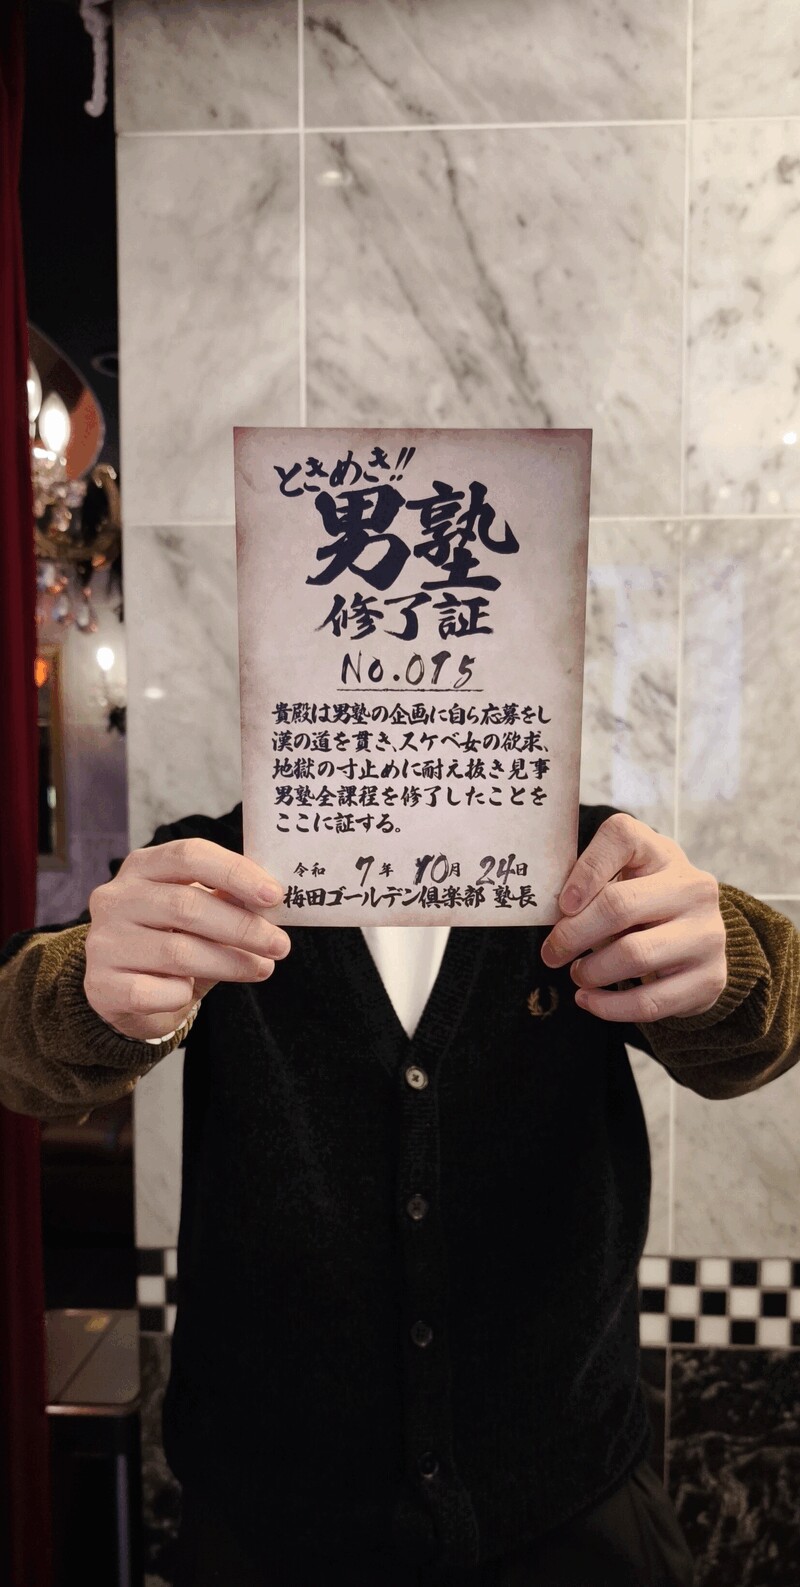 ときめき!!
男塾
修了証
No.075
貴殿は男塾の企画に自ら応募をし
漢の道を貫き、スケベ女の欲求、
地獄の寸止めに耐え抜き見事
男塾全課程を修了したことを
ここに証する。
令和 7年 10月 24日
梅田ゴールデン倶楽部 塾長